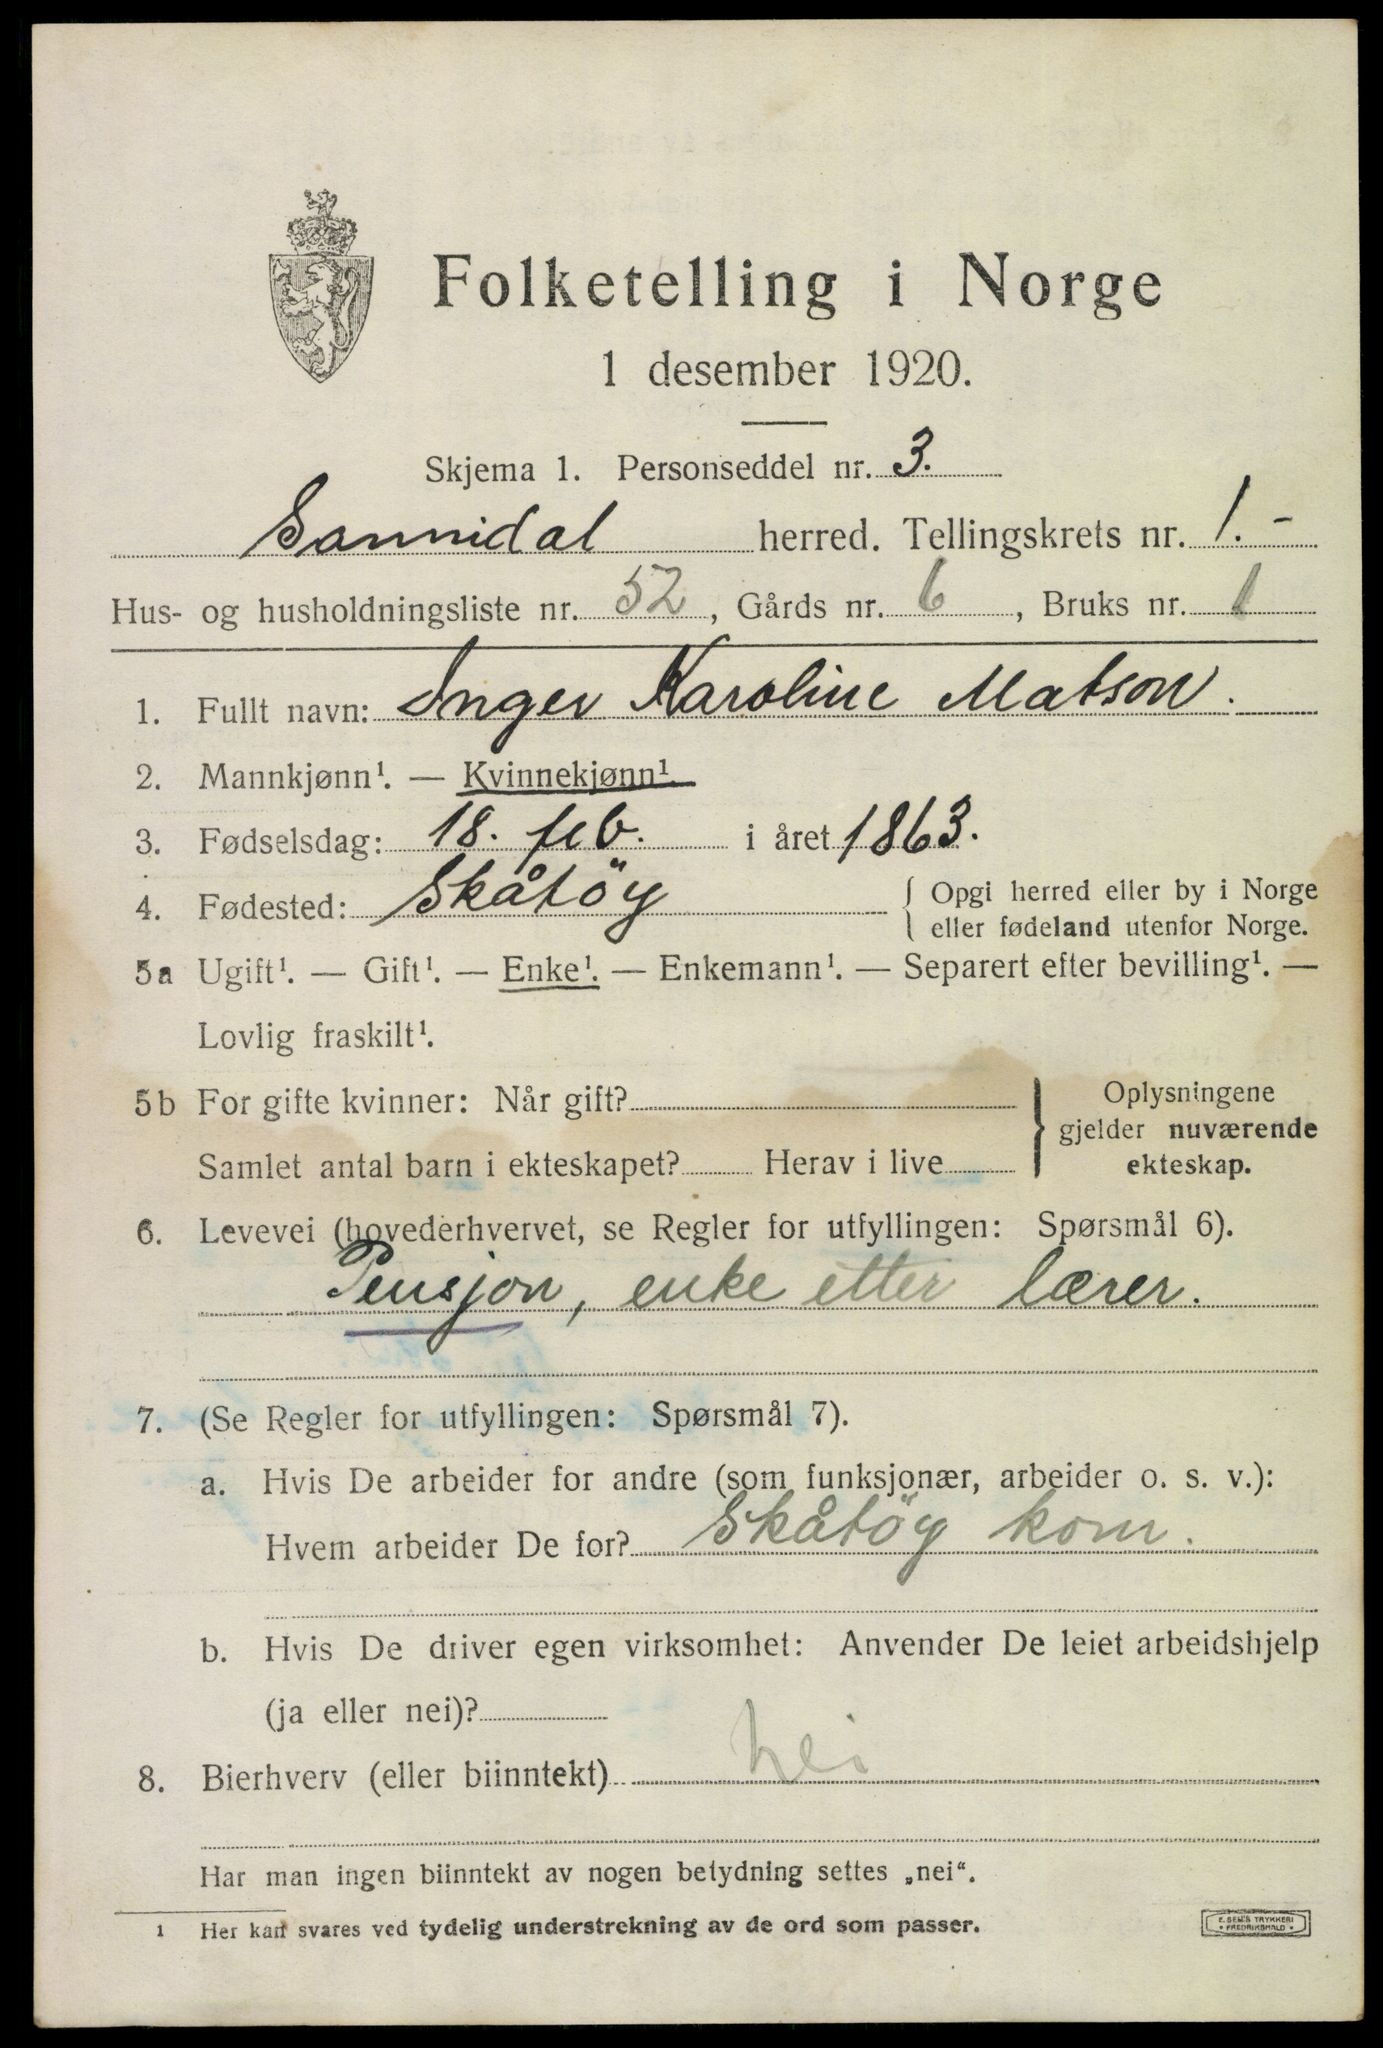 Folketelling i Norge
1 desember 1920.
Skjema 1. Personseddel nr. 3.
Sannidal herred. Tellingskrets nr. 1. -
Hus- og husholdningsliste nr. 52, Gårds nr. 6, Bruks nr. 1
1. Fullt navn: Inger Karoline Matson.
2. Mannkjønn¹. — Kvinnekjønn¹.
3. Fødselsdag: 18. feb. i året 1863.
4. Fødested: Skåtöy { Opgi herred eller by i Norge
eller fødeland utenfor Norge.
5a Ugift¹. — Gift¹. — Enke¹. — Enkemann¹. — Separert efter bevilling¹. —
Lovlig fraskilt¹.
5b For gifte kvinner: Når gift?
Samlet antal barn i ekteskapet? Herav i live
} Oplysningene
gjelder nuværende
ekteskap.
6. Levevei (hovederhvervet, se Regler for utfyllingen: Spørsmål 6).
Pensjon, enke etter lærer.
7. (Se Regler for utfyllingen: Spørsmål 7).
a. Hvis De arbeider for andre (som funksjonær, arbeider o. s. v.):
Hvem arbeider De for? Skåtöy kom.
b. Hvis De driver egen virksomhet: Anvender De leiet arbeidshjelp
(ja eller nei)?
8. Bierhverv (eller biinntekt) nei
Har man ingen biinntekt av nogen betydning settes „nei“.
1 Her kan svares ved tydelig understrekning av de ord som passer.
E. SEM'S TRYKKERI
• FREDRIKSHALD •